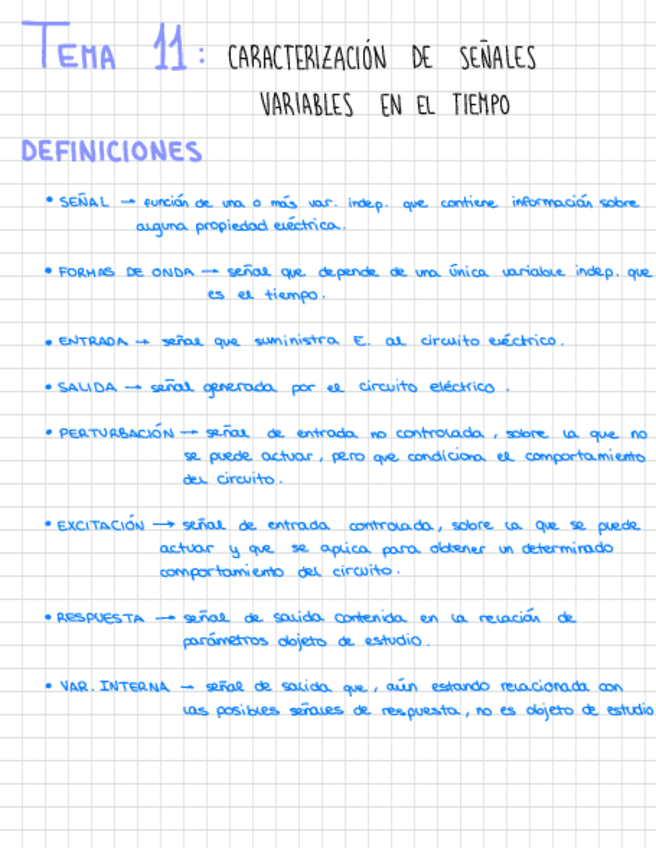 TEMA 11: CARACTERIZACIÓN DE SEÑALES
VARIABLES EN EL TIEMPO
DEFINICIONES
• SEÑAL → función de una o más var. indep. que contiene información sobre
alguna propiedad eléctrica.
• FORMAS DE ONDA → señal que depende de una única variable indep. que
es el tiempo.
• ENTRADA → señal que suministra E. al circuito eléctrico.
• SALIDA → señal generada por el circuito eléctrico.
• PERTURBACIÓN → señal de entrada no controlada, sobre la que no
se puede actuar, pero que condiciona el comportamiento
del circuito.
• EXCITACIÓN → señal de entrada controlada, sobre la que se puede
actuar y que se aplica para obtener un determinado
comportamiento del circuito.
• RESPUESTA → señal de salida contenida en la relación de
parámetros objeto de estudio.
• VAR. INTERNA → señal de salida que, aún estando relacionada con
las posibles señales de respuesta, no es objeto de estudio